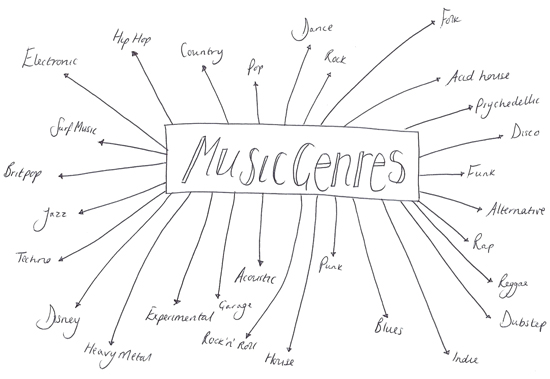 Folk
Dance
Hip Hop
Country
Rock
Electronic
Pop
Acid house
Psychedellic
Surf Music
Disco
Music Genres
Britpop
Funk
Jazz
Alternative
Rap
Techno
Punk
Acoustic
Reggae
Disney
Experimental
Garage
Dubstep
Blues
Rock'n'Roll
Heavy Metal
House
Indie